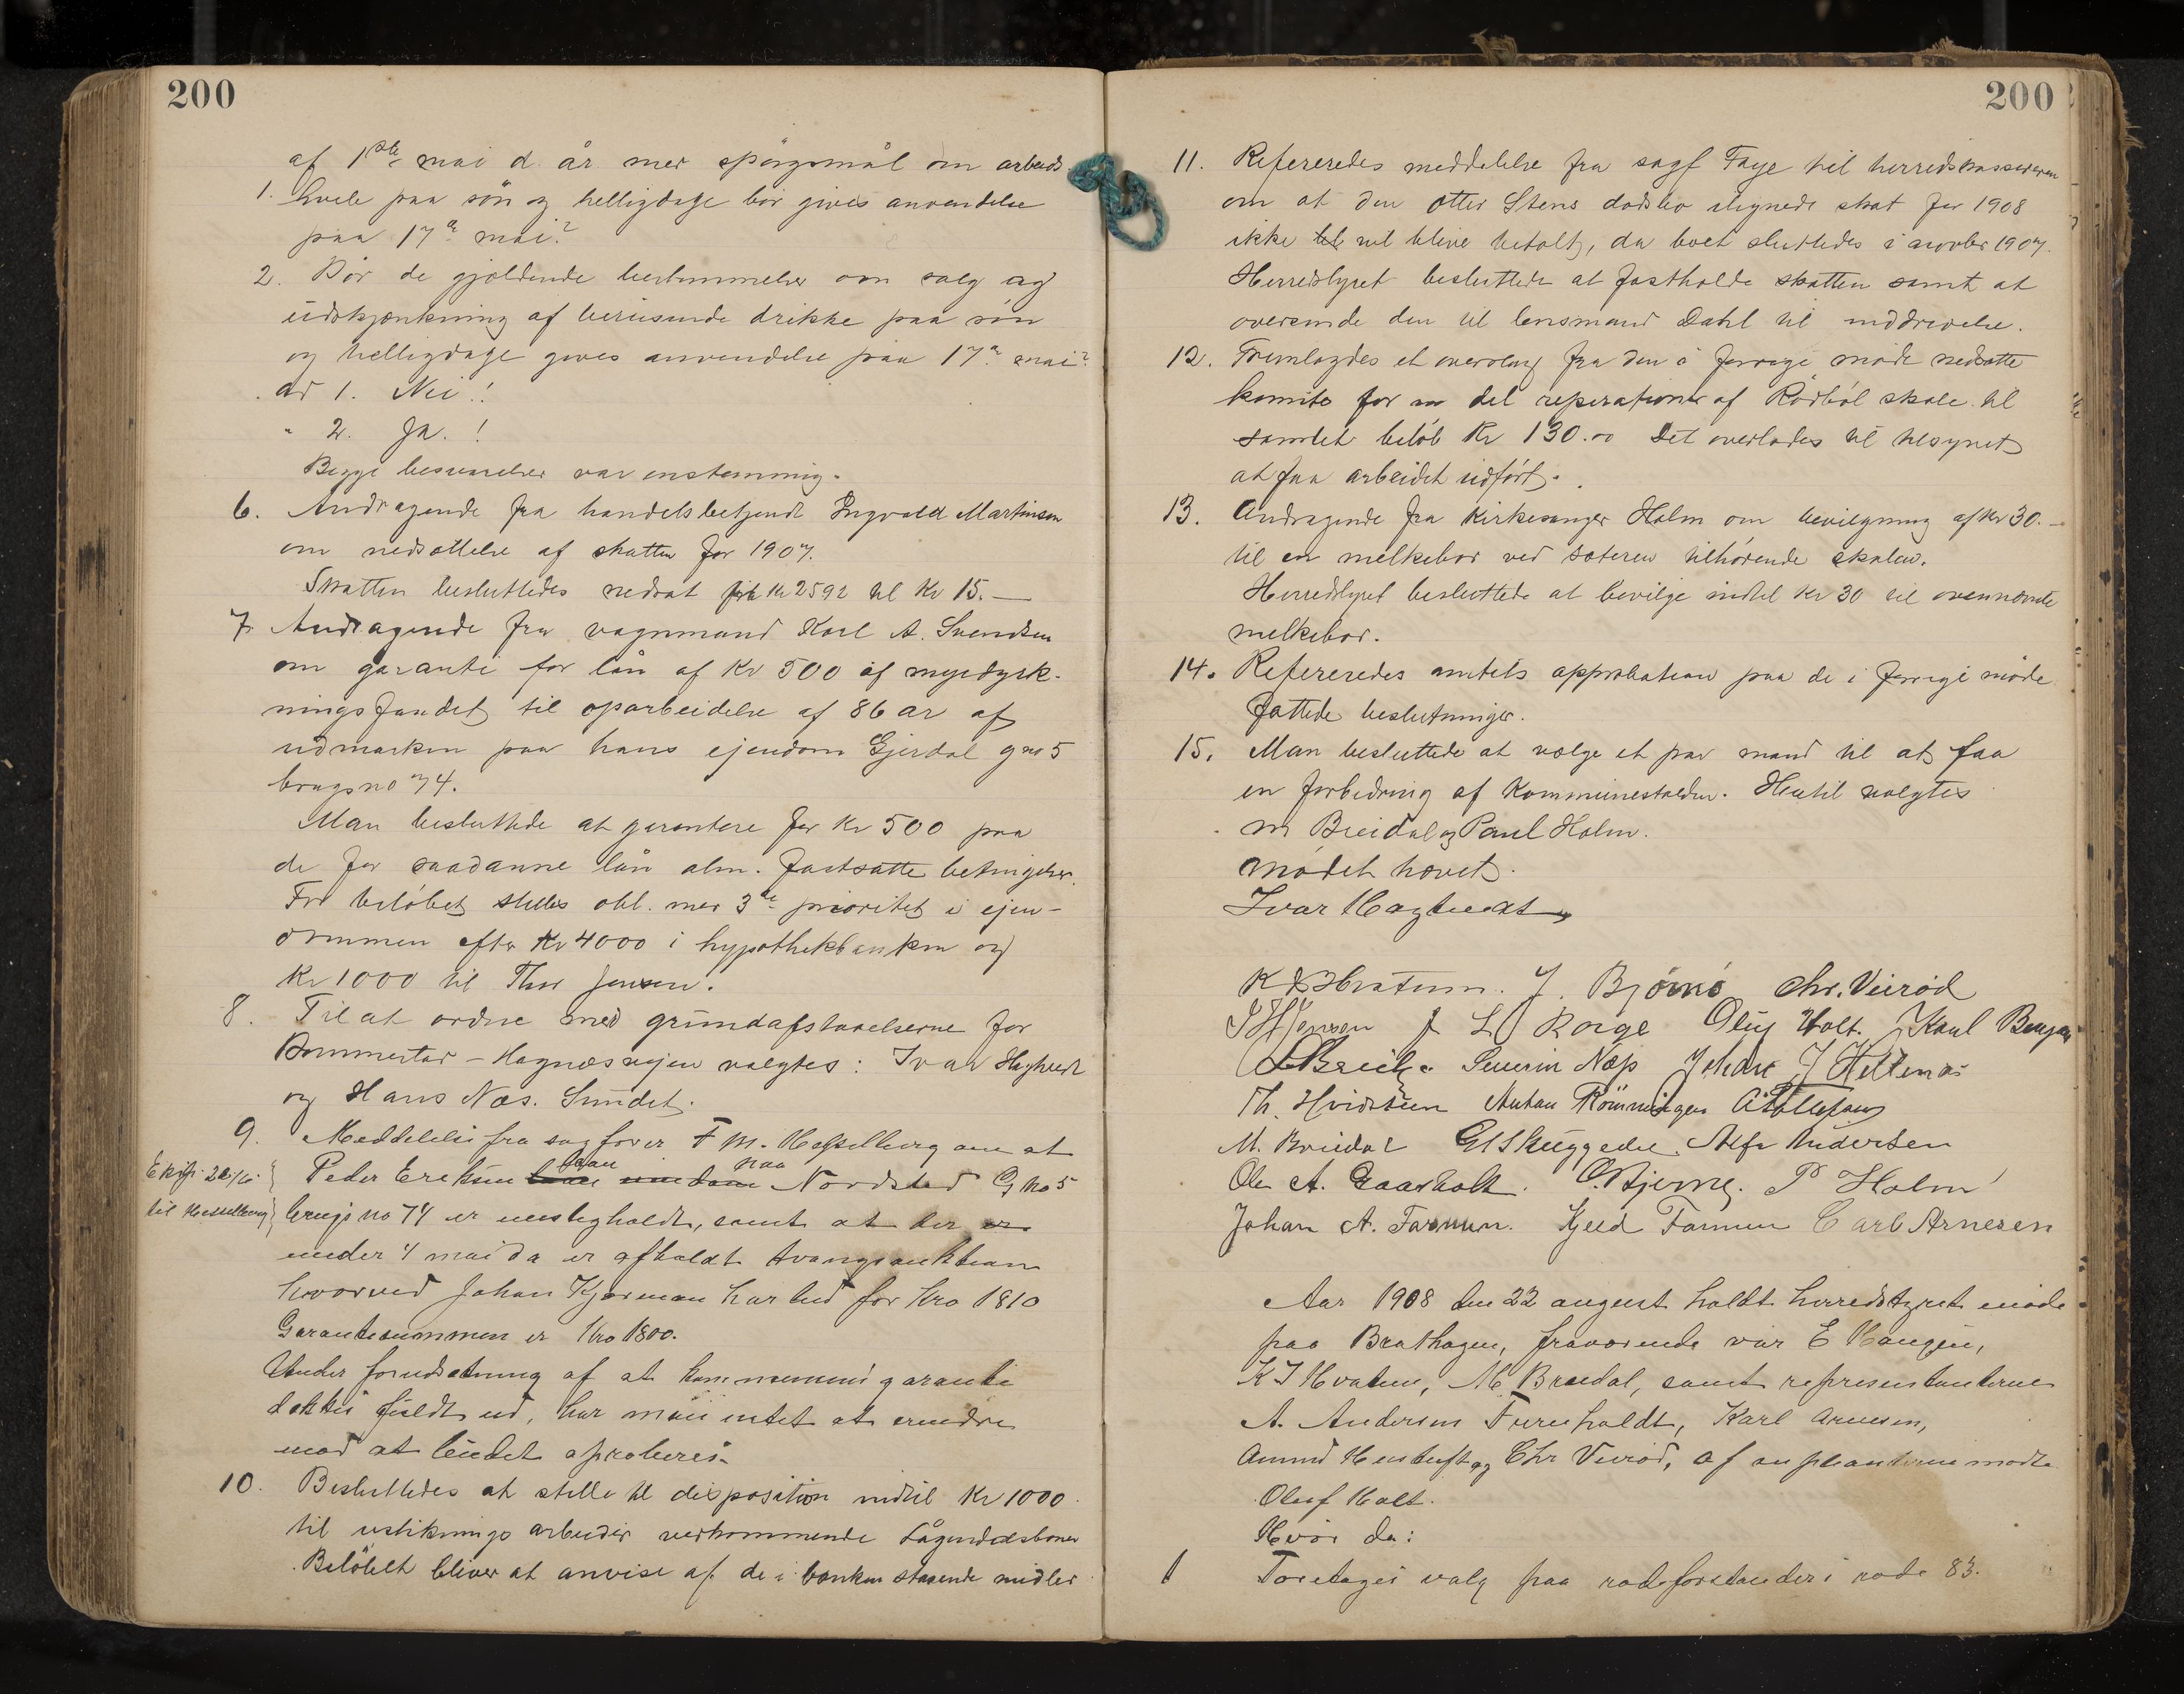 200
af 1ste mai d. år med spörgsmål om arbeids-
1. hvile paa sön og helligdage bör gives anvendelse
paa 17de mai?
2. Bör de gjældende bestemmelser om salg og
udskjænkning af berusende drikke paa sön
og helligdage gives anvendelse paa 17de mai?
ad 1. Nei!
" 2. Ja.!
Begge besvarelser var enstemmig.
6. Andragende fra handelsbetjent Ingvald Martinsen
om nedsættelse af skatten for 1907.
Skatten besluttedes nedsat fra Kr 25 92 til Kr 15.—
7. Andragende fra vognmand Karl A. Svendsen
om garanti for lån af Kr 500 af myrdyrk-
ningsfondet til oparbeidelse af 86 ar af
udmarken paa hans ejendom Gjerdal gno 5
brugsno 74.
Man besluttede at garantere for Kr 500 paa
de for saadanne lån alm. fastsatte betingelser.
For belöbet stilles obl. med 3de prioritet i ejen-
dommen efter Kr 4000 i hypothekbanken og
Kr 1000 til Thor Jensen.
8. Til at ordne med grundafstaaelserne for
Bommestad – Hagnæsvejen valgtes: Ivar Hagtvedt
og Hans Næs. Sundet.
9. Meddelelse fra sagförer F. M. Hesselberg om at
Ekssp. 20/6. Peder Eriksens laan paa Nordsted G No 5
til Hesselberg brugs no 74 er misligholdt, samt at der er
under 4 mai da er afholdt tvangsauktion
hvorved Johan Kjærman har bud for Kro 1810
Garantisummen er Kro 1800.
Under forudsetning af at kommunens garanti
dækkes fuldt ud, har man intet at erindre
mod at budet aproberes.
10. Besluttedes at stille til disposition indtil Kr 1000
til udstiknings arbeider vedkommende Lågendalsbanen
Belöbet bliver at anvise af de i banken staaende midler
200
11. Refereredes meddelelse fra sagf Faye til herredskassereren
om at den Otter Stens dødsbo ilignede skat for 1908
ikke vil blive betalt, da boet sluttedes i novbr 1907.
Herredstyret besluttede at fastholde skatten samt at
oversende den til lensmand Dahl til inddrivelse.
12. Fremlagdes et overslag fra den i forrige möde nedsatte
komite for en del reperationer af Rödböl skole til
samlet belöb Kr 130.00 Det overlades til tilsynet
at faa arbeidet udfört.
13. Andragende fra Kirkesanger Holm om bevilgning af Kr 30.—
til en melkebod ved sæteren tilhörende skolen.
Herredstyret besluttede at bevilge indtil Kr 30 til ovennævnte
melkebod.
14. Refereredes amtets approbation paa de i forrige möde
fattede beslutninger.
15. Man besluttede at vælge et par mand til at faa
en forbedring af Kommunestalden. Hertil valgtes
M Breidal og Paul Holm.
Mödet hævet.
Ivar Hagtvedt
J. Björnö Chr. Veiröd
Oluf Holt.
Severin Næs
Th. Hvidsteen Anton Rönningen
M. Breidal G Skuggedal. Alfr Andersen
Ole A. Gaasholt. O. Bjerne. P Holm
Johan A. Farmen. Kjeld Farmen Carl Arnesen
Aar 1908 den 22 august holdt herredstyret möde
paa Brathagen, fraværende var E Haugen,
K I Hvatum, M. Breidal, samt representanterne
A. Andersen Furuholdt, Karl Arnesen,
Amund Hentuft og Chr Veiröd, af supleanterne mödte
Oluf Holt.
Hvor da:
1 Foretages valg paa rodeforstander i rode 83.